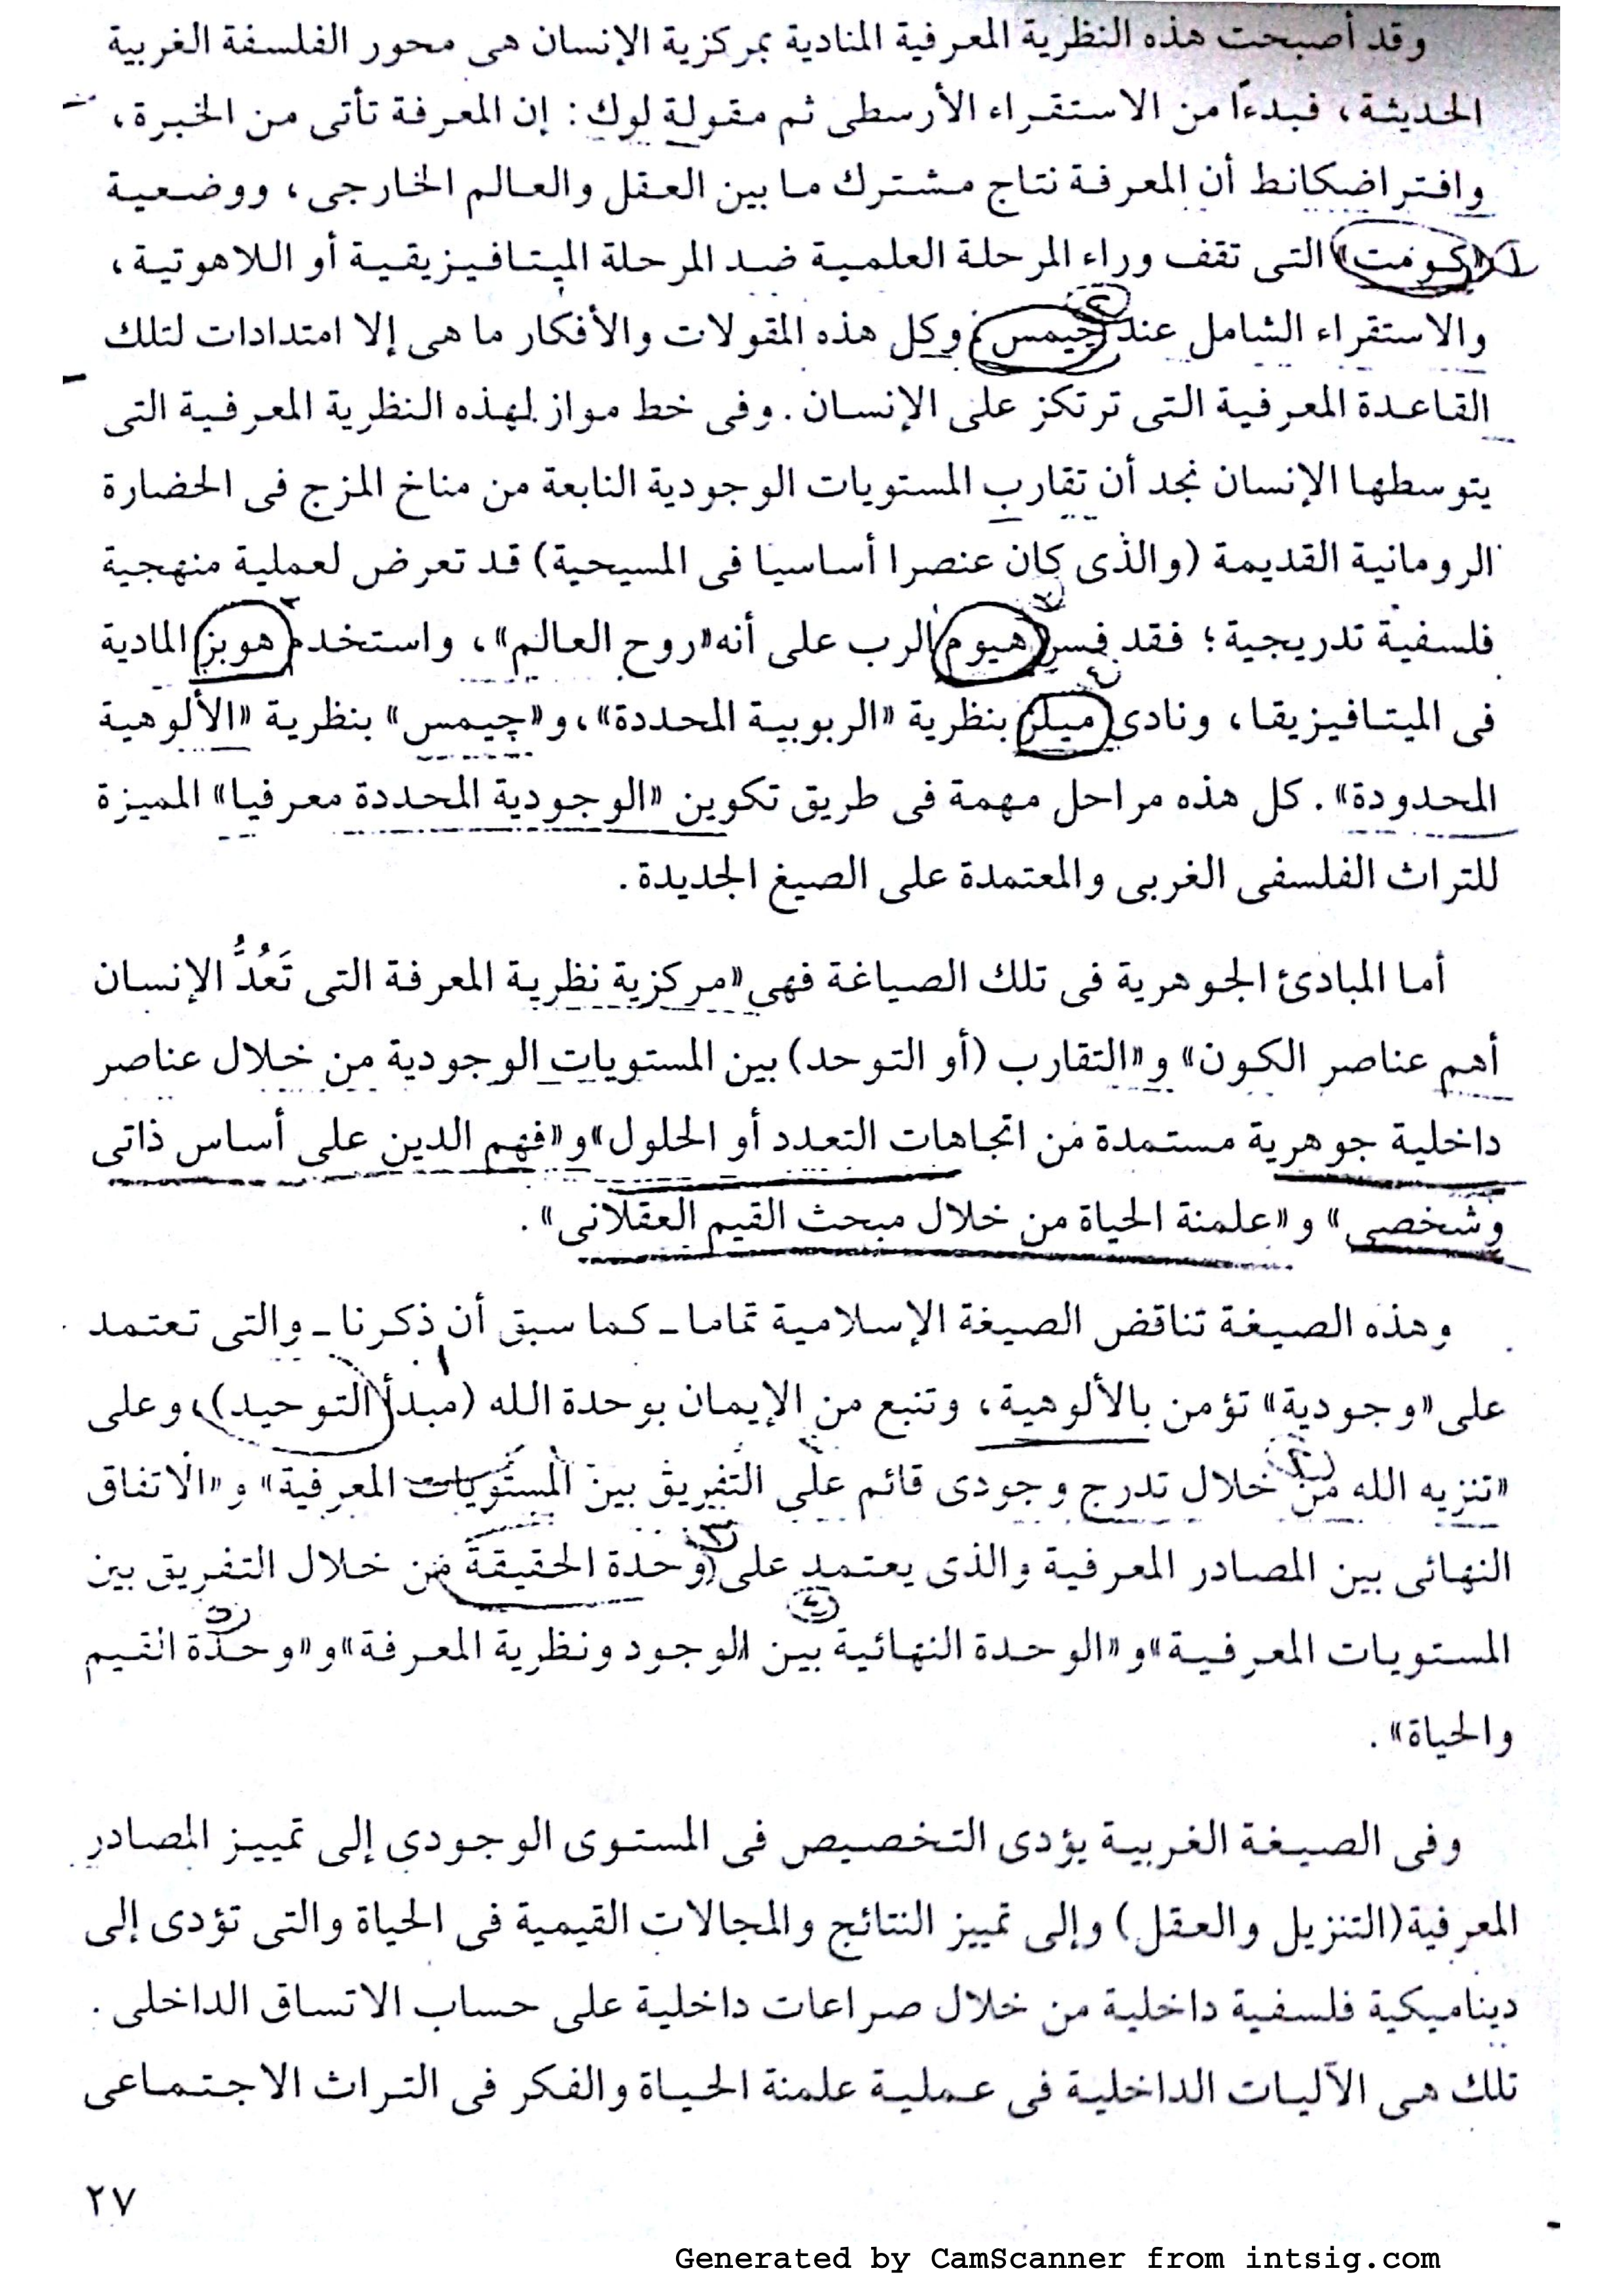 وقد أصبحت هذه النظرية المعرفية المنادية بمركزية الإنسان هى محور الفلسفة الغربية
الحديثة، فبدءًا من الاستقراء الأرسطى ثم مقولة لوك: إن المعرفة تأتى من الخبرة،
وافتراضكانط أن المعرفة نتاج مشترك ما بين العقل والعالم الخارجى، ووضعية
«كومت» التى تقف وراء المرحلة العلمية ضد المرحلة الميتافيزيقية أو اللاهوتية،
والاستقراء الشامل عند چيمس؛ وكل هذه المقولات والأفكار ما هى إلا امتدادات لتلك
القاعدة المعرفية التى ترتكز على الإنسان. وفى خط مواز لهذه النظرية المعرفية التى
يتوسطها الإنسان نجد أن تقارب المستويات الوجودية النابعة من مناخ المزج فى الحضارة
الرومانية القديمة (والذى كان عنصرا أساسيا فى المسيحية) قد تعرض لعملية منهجية
فلسفية تدريجية؛ فقد فسر هيوم الرب على أنه «روح العالم»، واستخدم هوبز المادية
فى الميتافيزيقا، ونادى ميلز بنظرية «الربوبية المحددة»، و«چيمس» بنظرية «الألوهية
المحدودة». كل هذه مراحل مهمة فى طريق تكوين «الوجودية المحددة معرفيا» المميزة
للتراث الفلسفى الغربى والمعتمدة على الصيغ الجديدة.
أما المبادئ الجوهرية فى تلك الصياغة فهى «مركزية نظرية المعرفة التى تَعُدُّ الإنسان
أهم عناصر الكون» و«التقارب (أو التوحد) بين المستويات الوجودية من خلال عناصر
داخلية جوهرية مستمدة من اتجاهات التعدد أو الحلول» و«فهم الدين على أساس ذاتى
وشخصى» و«علمنة الحياة من خلال مبحث القيم العقلانى».
وهذه الصيغة تناقض الصيغة الإسلامية تماما ـ كما سبق أن ذكرنا ـ والتى تعتمد
على «وجودية» تؤمن بالألوهية، وتنبع من الإيمان بوحدة الله (مبدأ التوحيد)، وعلى
«تنزيه الله من خلال تدرج وجودى قائم على التفريق بين المستويات المعرفية» و«الاتفاق
النهائى بين المصادر المعرفية والذى يعتمد على وحدة الحقيقة من خلال التفريق بين
المستويات المعرفية» و«الوحدة النهائية بين الوجود ونظرية المعرفة» و«وحدة القيم
والحياة».
وفى الصيغة الغربية يؤدى التخصيص فى المستوى الوجودى إلى تمييز المصادر
المعرفية (التنزيل والعقل) وإلى تمييز النتائج والمجالات القيمية فى الحياة والتى تؤدى إلى
ديناميكية فلسفية داخلية من خلال صراعات داخلية على حساب الاتساق الداخلى.
تلك هى الآليات الداخلية فى عملية علمنة الحياة والفكر فى التراث الاجتماعى
٢٧
Generated by CamScanner from intsig.com